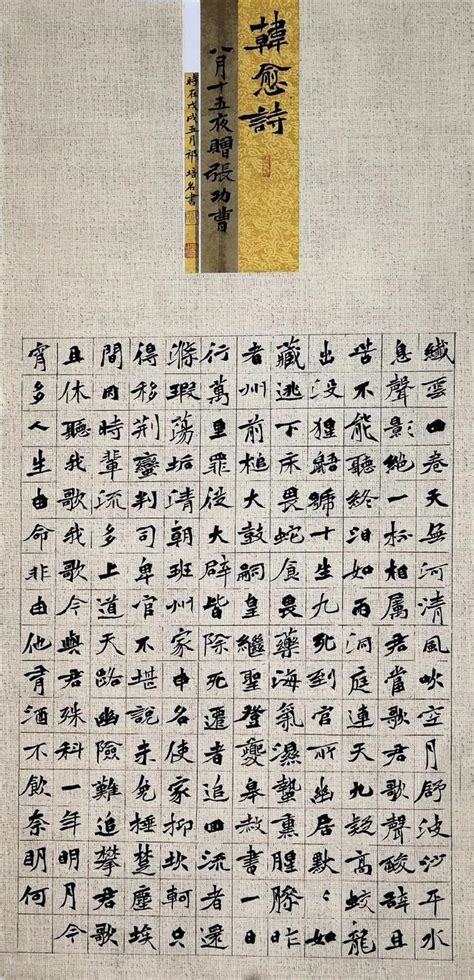 韓愈詩
八月十五夜贈張功曹
時在戊戌五月祁培名書
纖雲四卷天無河清風吹空月舒波沙平水
息聲影絕一杯相屬君當歌君歌聲酸辭且
苦不能聽終泪如雨洞庭連天九疑高蛟龍
出沒猩鼯號十生九死到官所幽居默〻如
藏逃下床畏蛇食畏藥海氣濕蟄熏腥臊昨
者州前槌大鼓嗣皇繼聖登夔皋赦書一日
行萬里罪從大辟皆除死遷者追回流者還
滌瑕蕩垢清朝班州家申名使家抑坎軻只
得移荊蠻判司卑官不堪說未免捶楚塵埃
間同時輩流多上道天路幽險難追攀君歌
且休聽我歌我歌今與君殊科一年明月今
宵多人生由命非由他有酒不飲奈明何